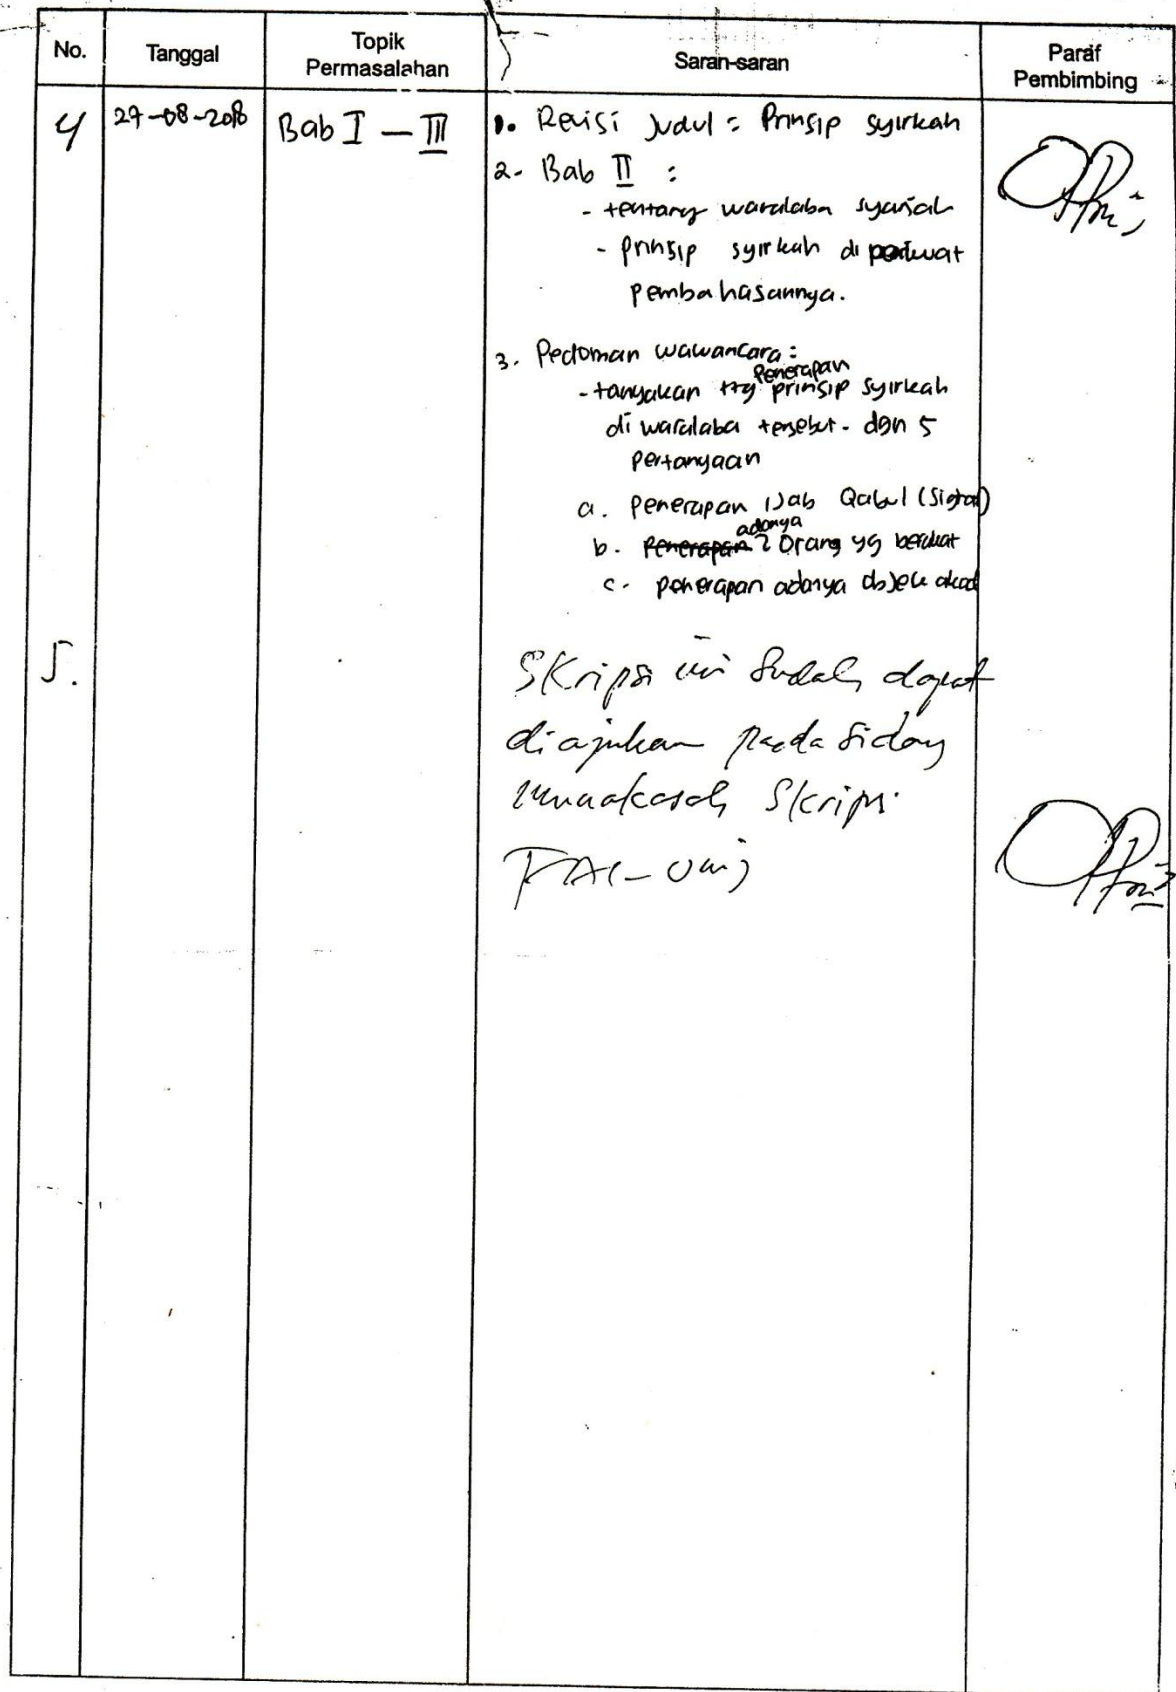 No. Tanggal Topik Permasalahan Saran-saran Paraf Pembimbing
4 27-08-2018 Bab I - III 1. Revisi Judul = Prinsip syirkah
2- Bab II :
- tentang waralaba syariah
- prinsip syirkah di perkuat
pembahasannya.
3. Pedoman wawancara :
Penerapan
- tanyakan ttg prinsip syirkah
di waralaba tersebut - dgn 5
pertanyaan
a. Penerapan Ijab Qabul (Sighat)
adanya
b. Penerapan 2 Orang yg berakad
c. penerapan adanya objek akad
5. Skripsi ini Sudah dapat
diajukan pada Sidang
munaqasah Skripsi
FAI-